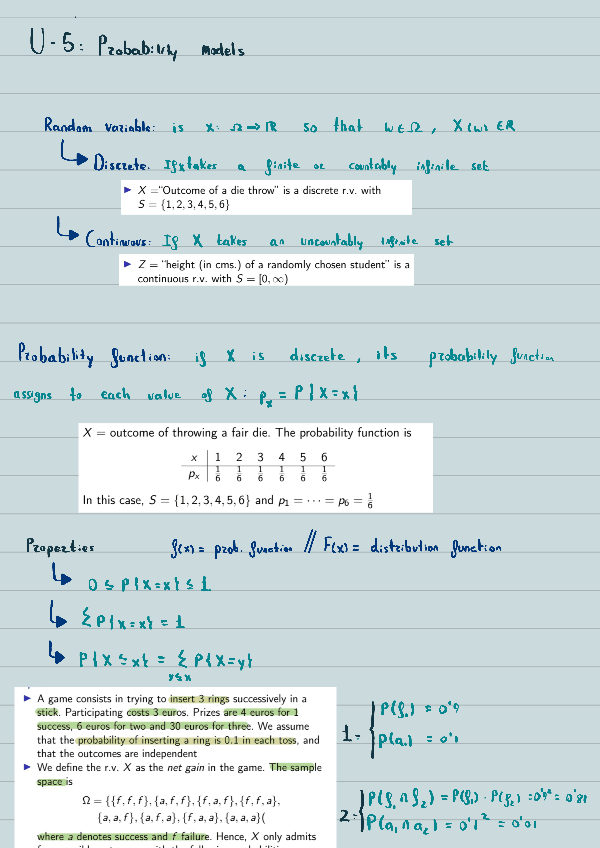 U-5: Probability models
Random variable: is X: Ω → ℝ so that w ∈ Ω, X(w) ∈ ℝ
Discrete. If x takes a finite or countably infinite set
▶ X = "Outcome of a die throw" is a discrete r.v. with
S = {1, 2, 3, 4, 5, 6}
Continuous: If X takes an uncountably infinite set
▶ Z = "height (in cms.) of a randomly chosen student" is a
continuous r.v. with S = [0, ∞)
Probability function: if X is discrete, its probability function
assigns to each value of X: pₓ = P{X=x}
X = outcome of throwing a fair die. The probability function is
x | 1 2 3 4 5 6
pₓ | 1/6 1/6 1/6 1/6 1/6 1/6
In this case, S = {1, 2, 3, 4, 5, 6} and p₁ = ··· = p₆ = 1/6
Properties f(x) = prob. function // F(x) = distribution function
0 ≤ P{X=x} ≤ 1
Σ P{X=x} = 1
P{X ≤ x} = Σ P{X=y}
y≤x
▶ A game consists in trying to insert 3 rings successively in a
stick. Participating costs 3 euros. Prizes are 4 euros for 1
success, 6 euros for two and 30 euros for three. We assume
that the probability of inserting a ring is 0.1 in each toss, and
that the outcomes are independent
▶ We define the r.v. X as the net gain in the game. The sample
space is
Ω = {{f, f, f}, {a, f, f}, {f, a, f}, {f, f, a},
{a, a, f}, {a, f, a}, {f, a, a}, {a, a, a}(
where a denotes success and f failure. Hence, X only admits
1 = { P(f₁) = 0'9
P(a₁) = 0'1
2 = { P(f₁ ∩ f₂) = P(f₁) · P(f₂) = 0'9² = 0'81
P(a₁ ∩ a₂) = 0'1² = 0'01